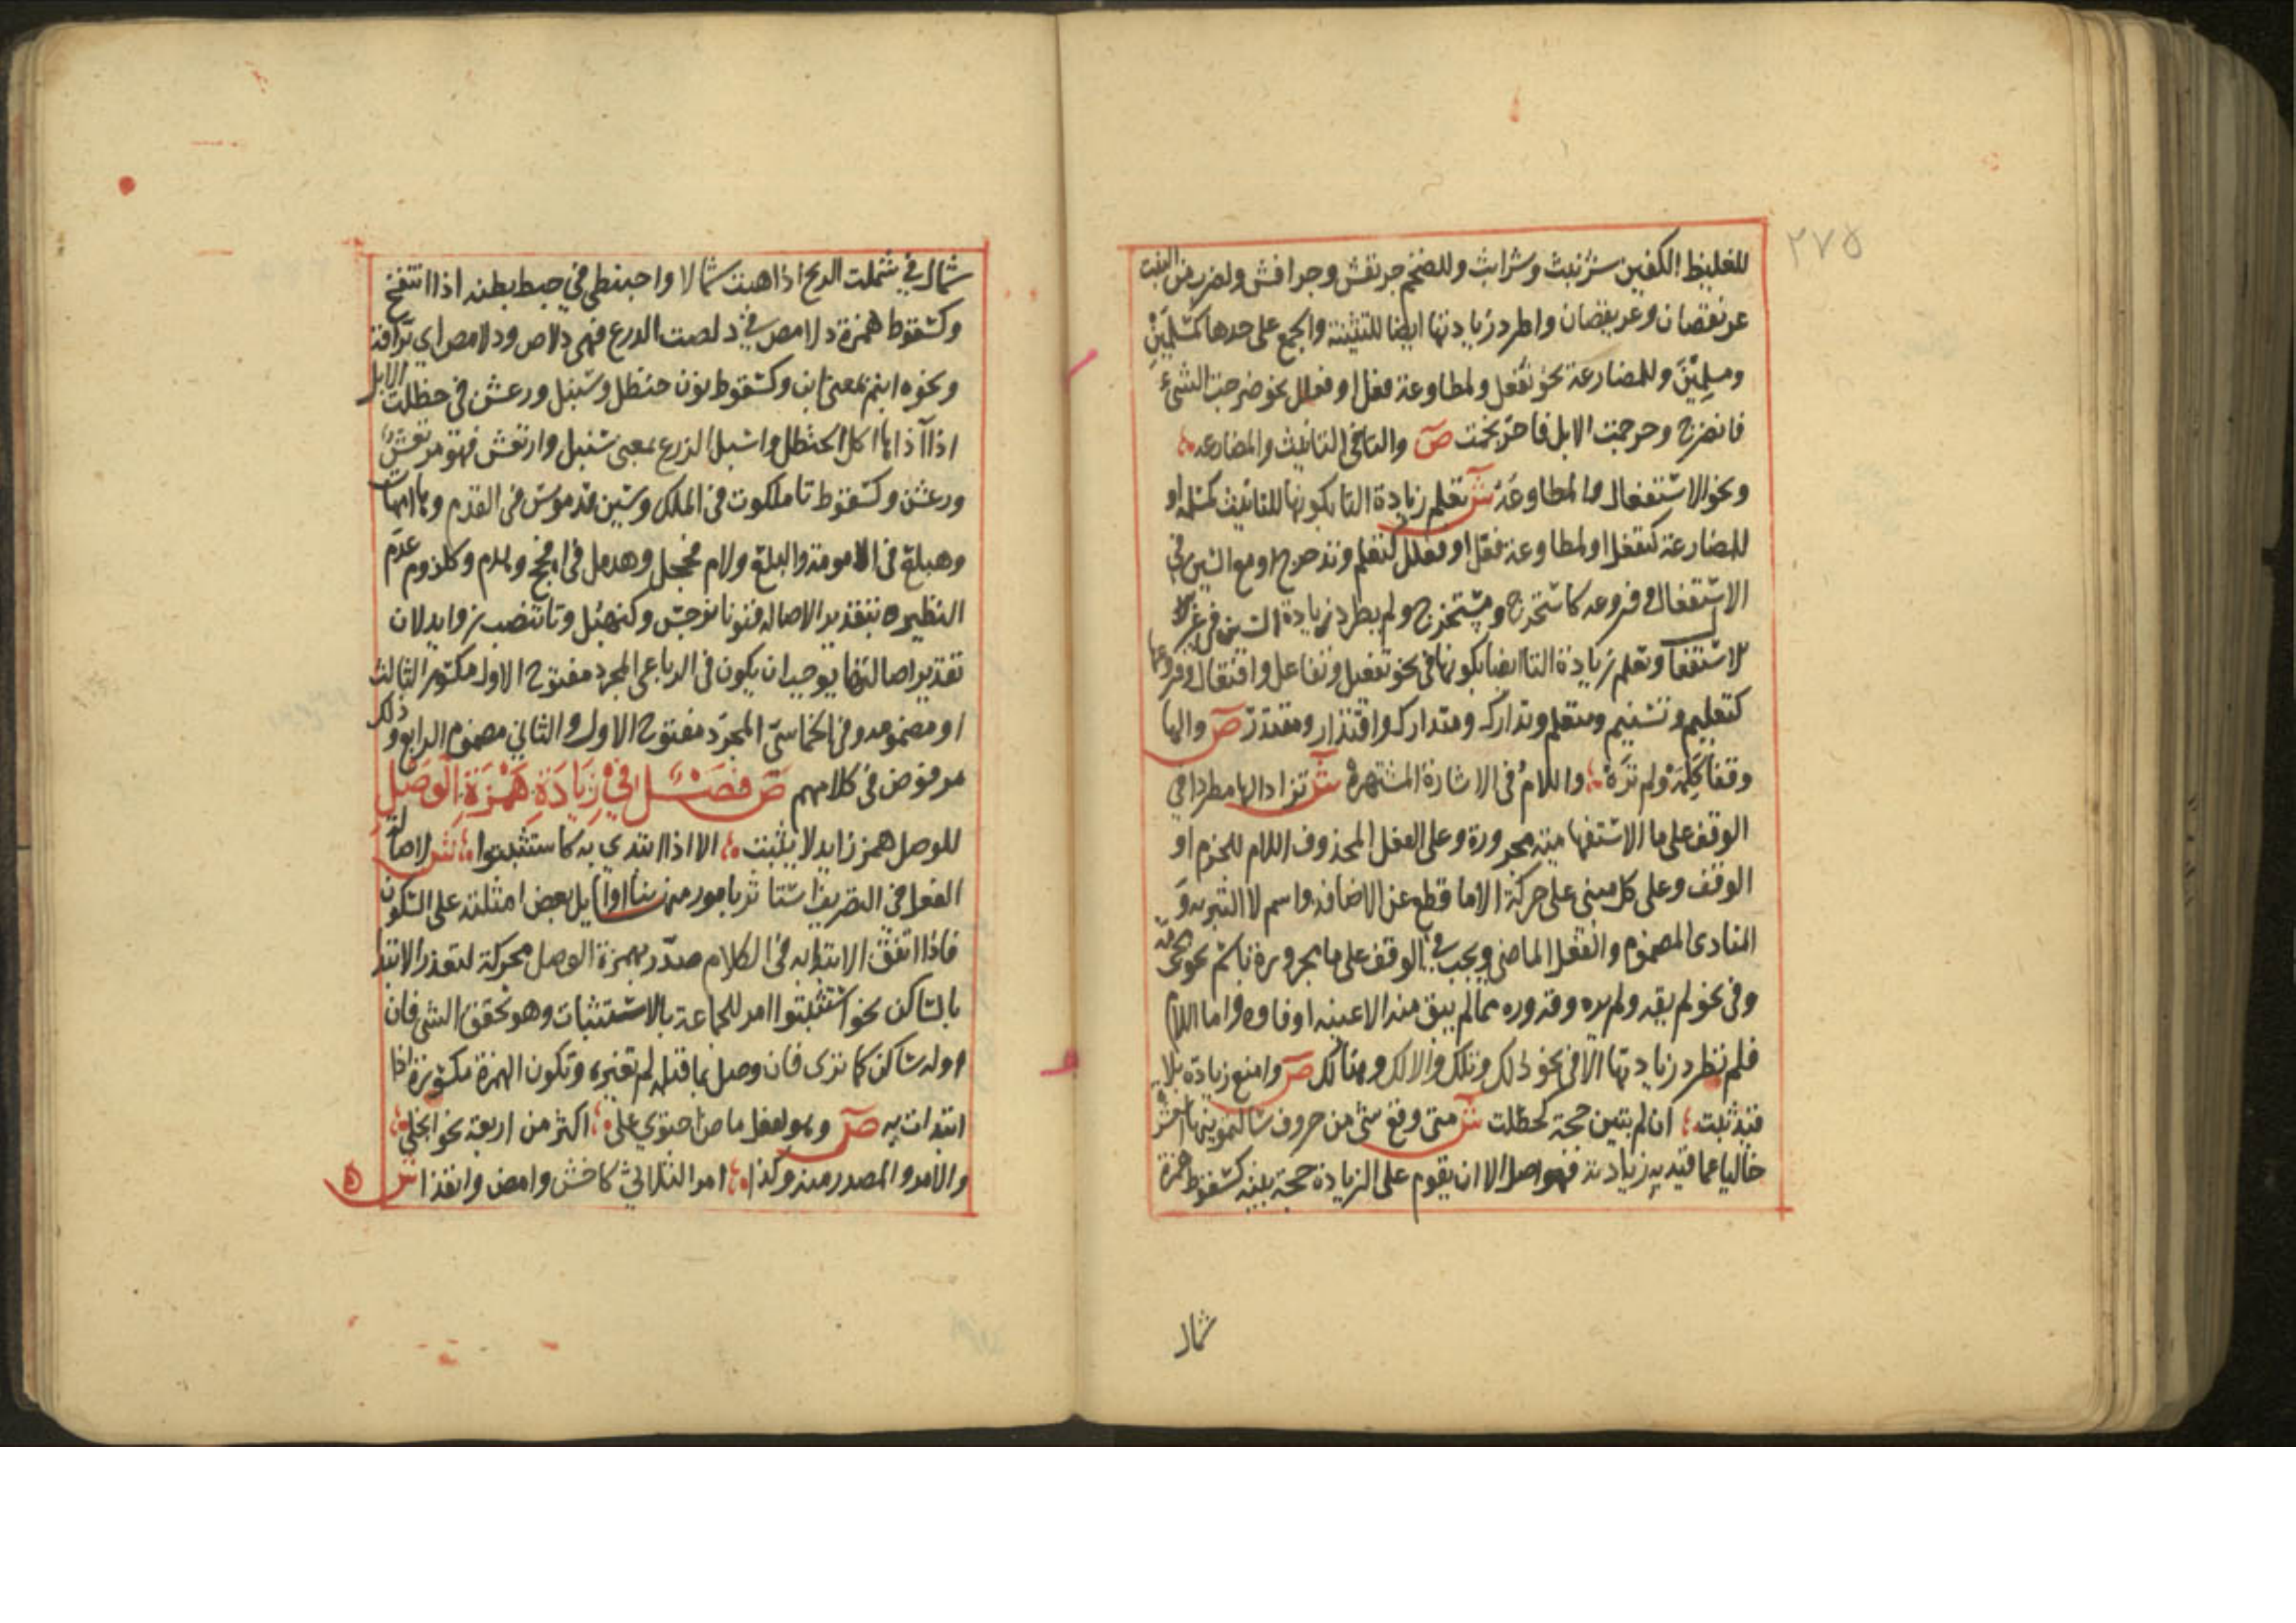 ٢٧٥
للغليظ الكفين شرنبث وشرابث وللضخم جرنفش وجرافش ولضرب من النبت
عرنقصان وعريقصان واطرد زيادتها ايضا للتثنية والجمع على حدها كمسلمَيْنِ
ومسلمِيْنَ وللمضارعة نحو نفعل ولمطاوعة فعل او فعلل نحو ضرجت الشيء
فانضرج وحرجمت الابل فاحرنجمت ص والتا في التانيث والمضارعه
ونحو الاستفعال والمطاوعَه ش تعلم زيادة التا بكونها للتانيث كمسلمه او
للمضارعة كتفعل او لمطاوعة فعّل او فعلل كتعلم وتدحرج او مع السين في
الاستفعال وفروعه كاستخرج ومستخرج ولم يطرد زيادة السين في غير
الاستفعال وتعلم زيادة التا ايضا بكونها في نحو تفعيل وتفاعل وافتعال وفروعها
كتعليم وتسنيم ومتعلم وتدارك ومتدارك واقتدار ومقتدر ص والها
وقفاً كَلِمَهْ ولم تَرَهْ واللامُ في الاشارة المشتهرهْ ش تزاد الها مطردا في
الوقف على ما الاستفهامية مجرورة وعلى الفعل المحذوف اللام للجزم او
الوقف وعلى كل مبني على حركة الا ما قطع عن الاضافه واسم لا التبريه و
المنادى المضموم والفعل الماضي ويجب في الوقف على ما مجرورة باسم نحو مجى مه
وفي نحو لم يقه ولم يره وقه وره مما لم يبق منه الا عينه او فاوه واما اللام
فلم تطرد زيادتها الا في نحو ذلك وتلك والالك وهنالك ص وامنع زيادة بلا
قيد ثبت ان لم تبين حجة كحظلت ش متى وقع شي من حروف سالتمونيها العشر
خاليا عما قيد به زيادته فهو اصل الا ان يقوم على الزيادة حجة بينه كسقوط همزة
شمال
شمال في شملت الريح اذا هبت شمالا واحبنطى في حبط بطنه اذا انتفخ
وكسقوط همزة دلامص في دلصت الدرع فهي دلاص ودلامص اي براقة
ونحوه ابنم بمعنى ابن وكسقوط نون حنظل وسنبل ورعشن في حظلت الابل
اذا آذاها اكل الحنظل واسبل الزرع بمعنى سنبل وارتعش فهو مرتعش
ورعشن وكسقوط تا ملكوت في الملك وسين قدموس في القدم وها امهات
وهبلع في الامومة والبلع ولام فحجل وهدمل في افحج وهدم وكلزوم عدم
النظير بتقدير الاصاله فنونا نرجس وكنهبل وتا تنضب زوايد لان
تقدير اصالتها يوجب ان يكون في الرباعي المجرد مفتوح الاول مكسور الثالث
او مضمومه وفي الخماسي المجرّد مفتوح الاول والثاني مضموم الرابع وذلك
مرفوض في كلامهم ص فصْل في زِيَادَةِ هَمْزَةِ الوَصْلِ
للوصل همز زايد لا يثبت الا اذا ابتدي به كاستثبتوا ش لاصالة
الفعل في التصريف استاثر بامور منها بنا اوايل بعض امثلته على السكون
فاذا اتفق الابتدا به في الكلام صدّر بهمزة الوصل محركة لتعذر الابتدا
بالساكن نحو استثبتوا امر للجماعة بالاستثبات وهو تحقق الشي فان
اوله ساكن كما ترى فان وصل بما قبله لم تغيره وتكون الهمزة مكسورة اذا
ابتدات به ص وهو لفعل ماض احتوي على اكثر من اربعة نحو انجلى
والامر والمصدر منه وكذا امر الثلاثي كاخش وامض وانفذا ش